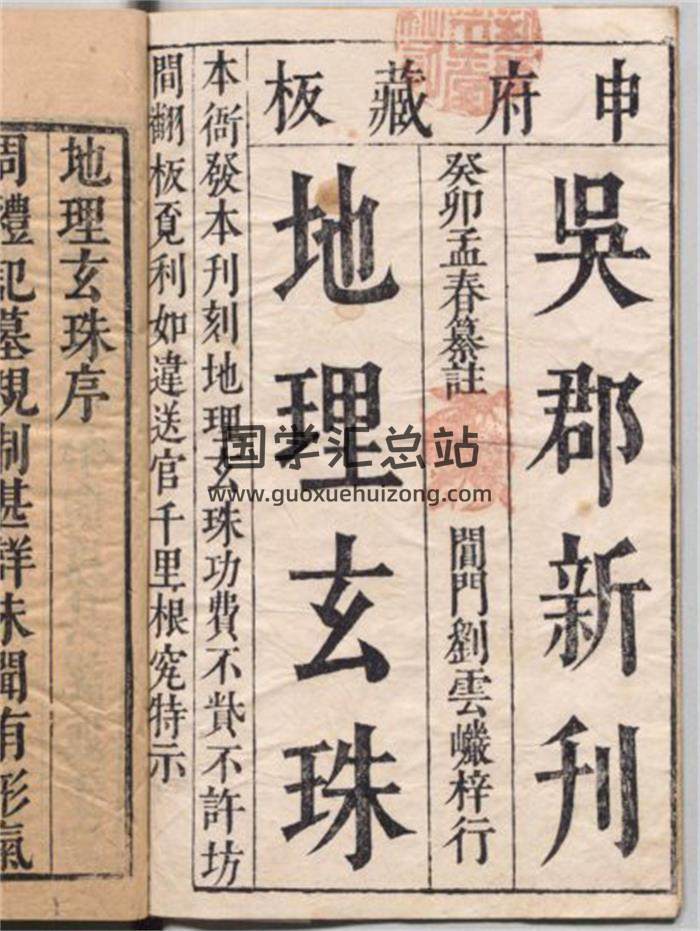 申府藏板
吳郡新刊
癸卯孟春纂註　閶門劉雲巗梓行
地理玄珠
本衙發本刊刻地理玄珠功費不貲不許坊
間翻板覔利如違送官千里根究特示
地理玄珠序
周禮記墓規制甚詳未聞有形氣
国学汇总站
www.guoxuehuizong.com